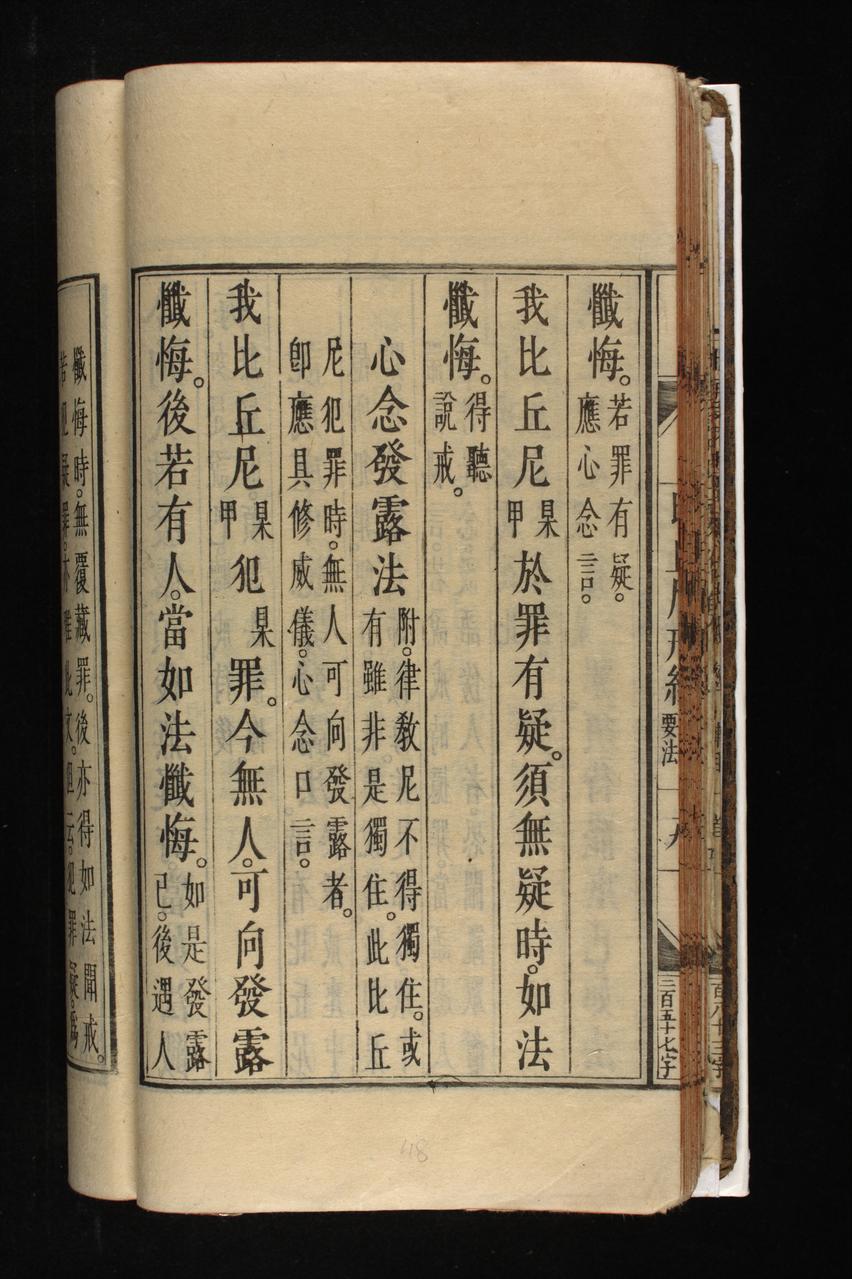 懺悔。若罪有疑。應心念言。
我比丘尼某甲於罪有疑。須無疑時。如法
懺悔。得聽說戒。
心念發露法附。律教尼不得獨住。或有雖非是獨住。此比丘
尼犯罪時。無人可向發露者。即應具修威儀。心念口言。
我比丘尼某甲犯某罪。今無人。可向發露
懺悔。後若有人。當如法懺悔。如是發露已。後遇人
懺悔時。無覆藏罪。後亦得如法聞戒。
要法
三百五十七字